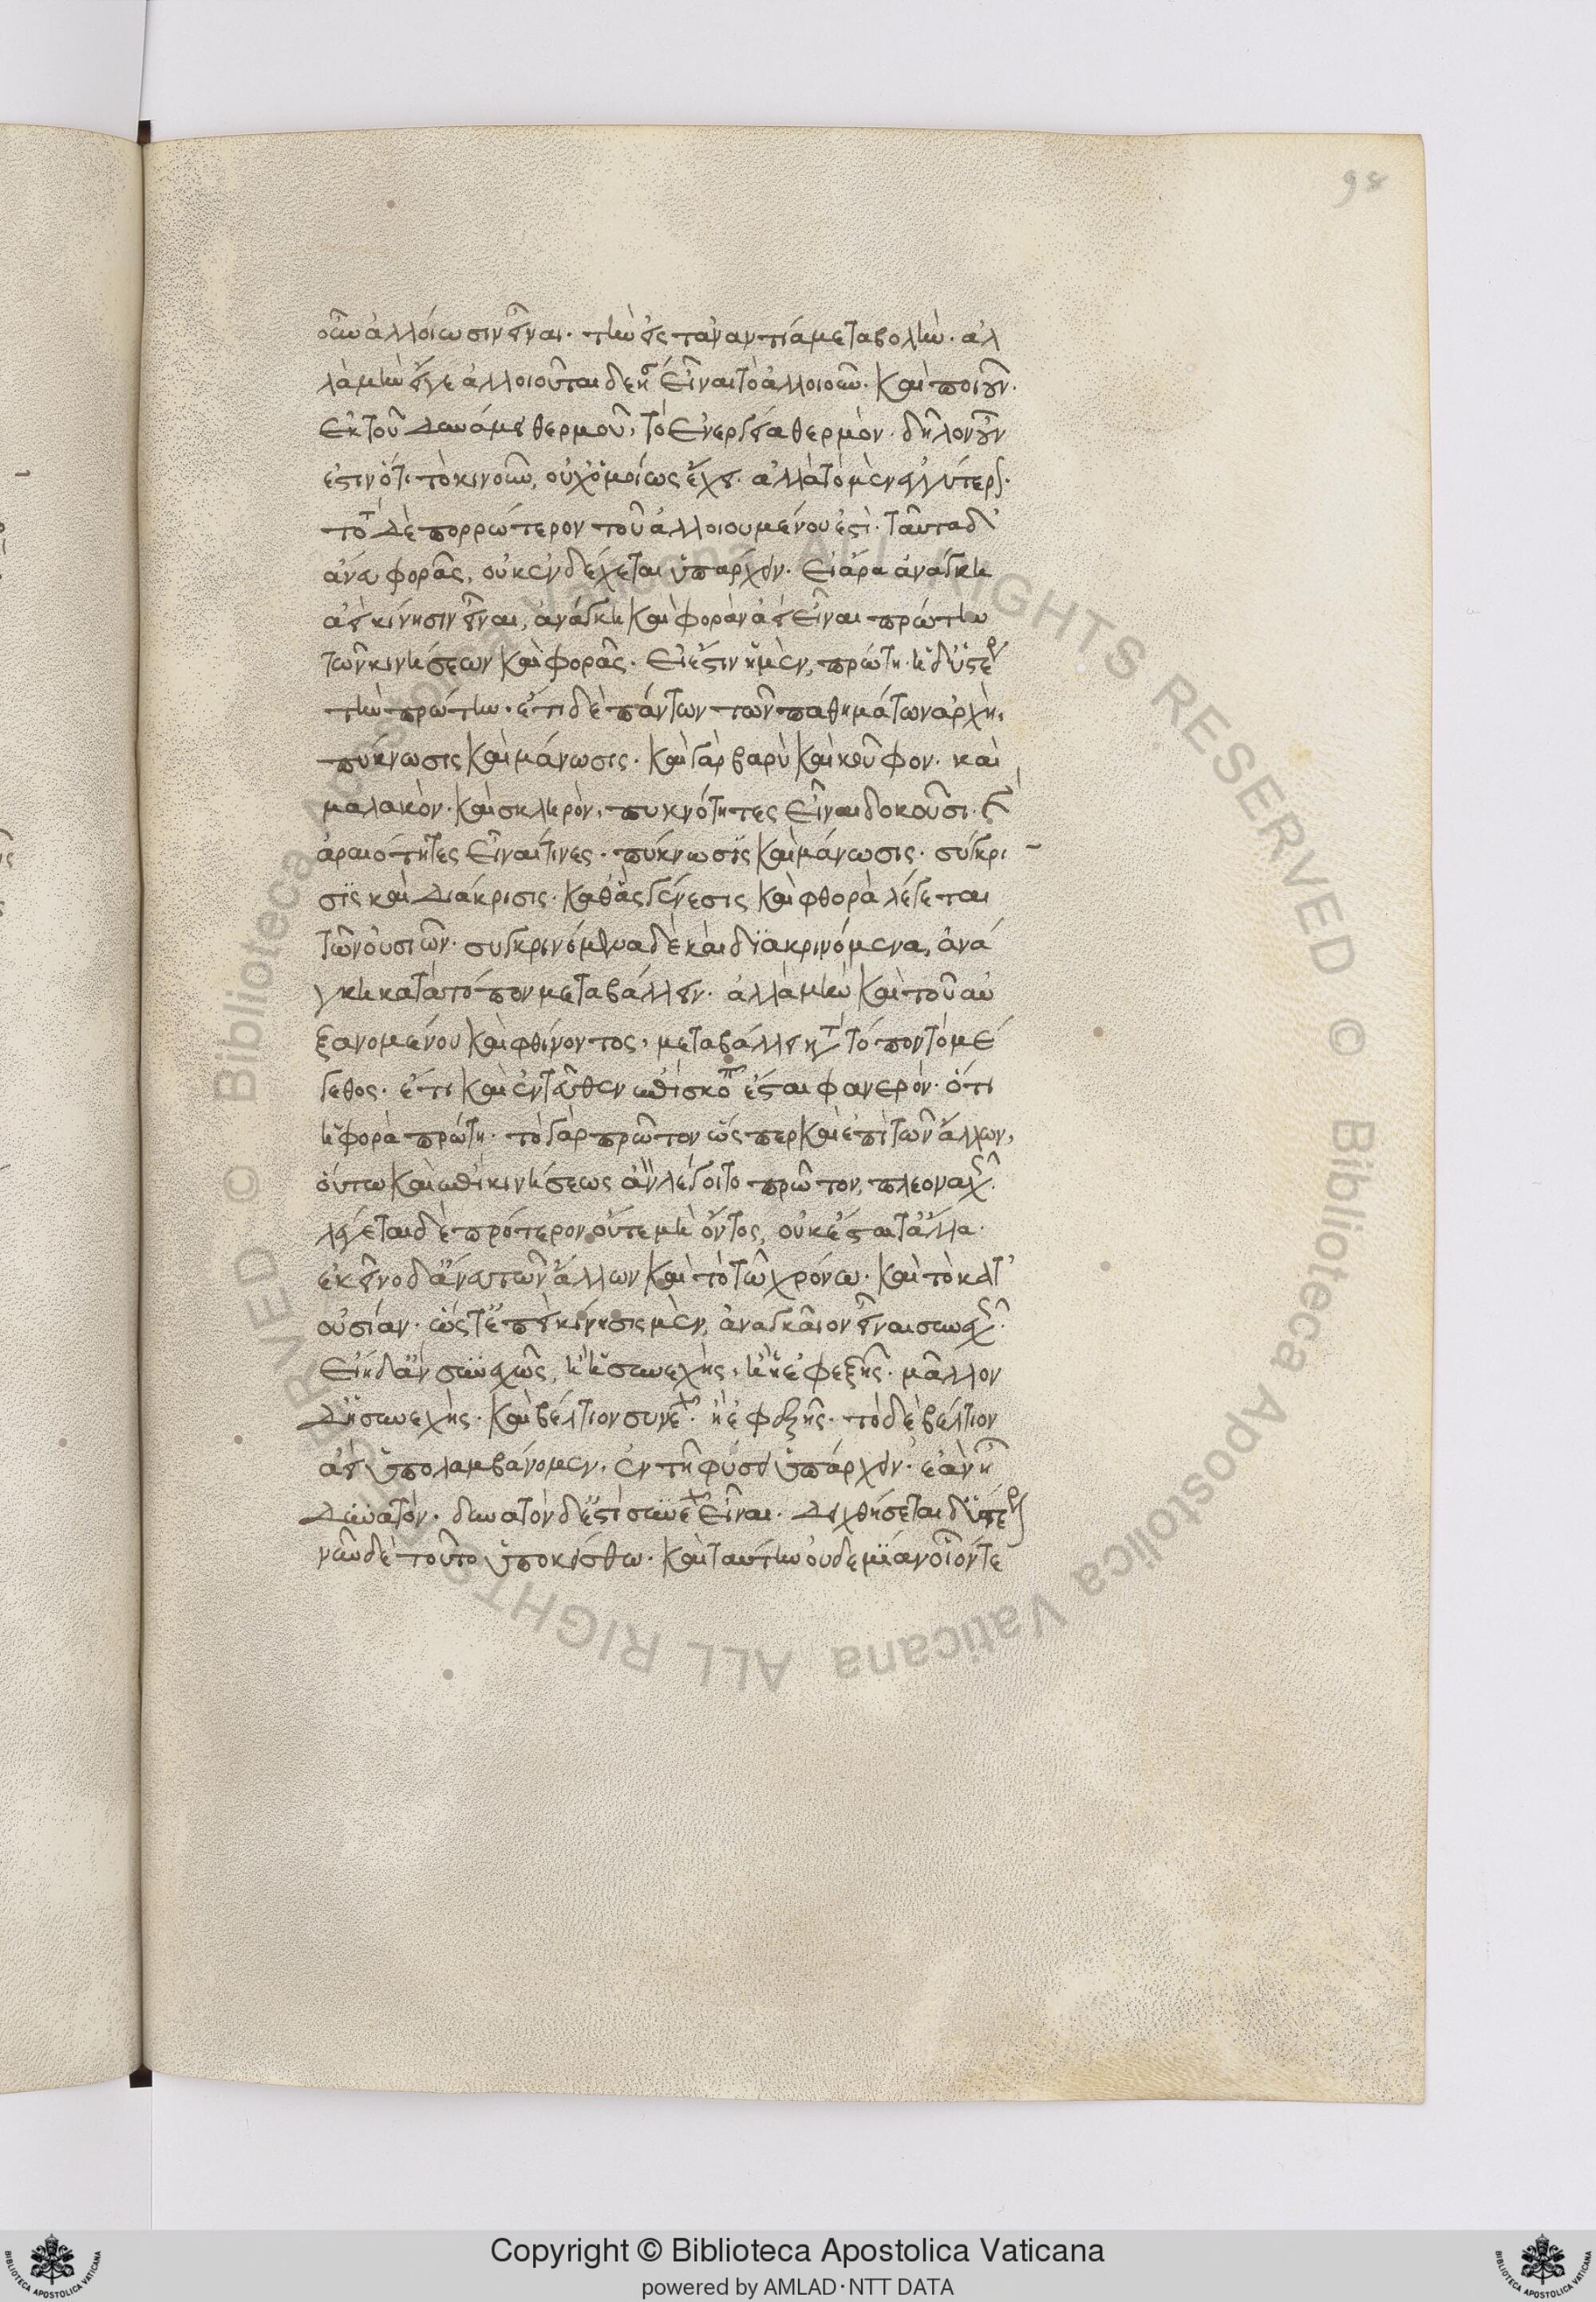 98
οῦν ἀλλοίωσιν εἶναι· τὴν εἰς τἀναντία μεταβολήν· ἀλ
λὰ μὴν εἴγε ἀλλοιοῦται δεῖ τι εἶναι τὸ ἀλλοιοῦν· καὶ ποιεῖν·
ἐκ τοῦ δυνάμει θερμοῦ, τὸ ἐνεργεία θερμόν· δῆλον οὖν
ἐστιν ὅτι τὸ κινοῦν, οὐχ ὁμοίως ἔχει· ἀλλὰ τὸ μὲν ἐγγύτερον·
τὸ δὲ πορρώτερον τοῦ ἀλλοιουμένου ἐστί· ταῦτα δ'
ἄνευ φορᾶς, οὐκ ἐνδέχεται ὑπάρχειν· εἰ ἄρα ἀνάγκη
ἀεὶ κίνησιν εἶναι, ἀνάγκη καὶ φορὰν ἀεὶ εἶναι πρώτην
τῶν κινήσεων καὶ φορᾶς· εἰ ἔστιν ἡ μὲν, πρώτη· ἡ δ' ὑστέρα
τὴν πρώτην· ἔτι δὲ πάντων τῶν παθημάτων ἀρχή,
πύκνωσις καὶ μάνωσις· καὶ γὰρ βαρὺ καὶ κοῦφον· καὶ
μαλακὸν· καὶ σκληρόν, πυκνότητες εἶναι δοκοῦσι· καὶ
ἀραιότητες εἶναι τινες· πύκνωσις καὶ μάνωσις· σύγκρι
σις καὶ διάκρισις· καθ' ἃς γένεσις καὶ φθορὰ λέγεται
τῶν οὐσιῶν· συγκρινόμενα δὲ καὶ διακρινόμενα, ἀνά
γκη κατὰ τόπον μεταβάλλειν· ἀλλὰ μὴν καὶ τοῦ αὐ
ξανομένου καὶ φθίνοντος, μεταβάλλει κατὰ τόπον τὸ μέ
γεθος· ἔτι καὶ ἐντεῦθεν ἐπισκοπ ἔσται φανερὸν· ὅτι
ἡ φορὰ πρώτη· τὸ γὰρ πρῶτον ὥσπερ καὶ ἐπὶ τῶν ἄλλων,
οὕτω καὶ ἐπὶ κινήσεως ἂν λέγοιτο πρῶτον, πλεοναχῶς·
λέγεται δὲ πρότερον οὗτε μὴ ὄντος, οὐκ ἔσται τἄλλα·
ἐκεῖνο δ' ἄνευ τῶν ἄλλων καὶ τὸ τῶ χρόνω· καὶ τὸ κατ'
οὐσίαν· ὥστ' ἐπεὶ κίνησις μὲν, ἀναγκαῖον εἶναι συνεχῶς·
εἴη δ' ἂν συνεχῶς, ἢ ἡ συνεχὴς, ἢ ἡ ἐφεξῆς· μᾶλλον
δ' ἡ συνεχής· καὶ βέλτιον συνεχ· ἢ ἐφεξῆς· τὸ δὲ βέλτιον
ἀεὶ ὑπολαμβάνομεν, ἐν τῆ φύσει ὑπάρχειν· ἐὰν ἦ
δυνατόν· δυνατὸν δ' ἐστὶ συνεχ εἶναι· δειχθήσεται δ' ὕστερον
νῦν δὲ τοῦτο ὑποκείσθω· καὶ ταύτην οὐδεμίαν οἷόντε
Copyright © Biblioteca Apostolica Vaticana
powered by AMLAD·NTT DATA